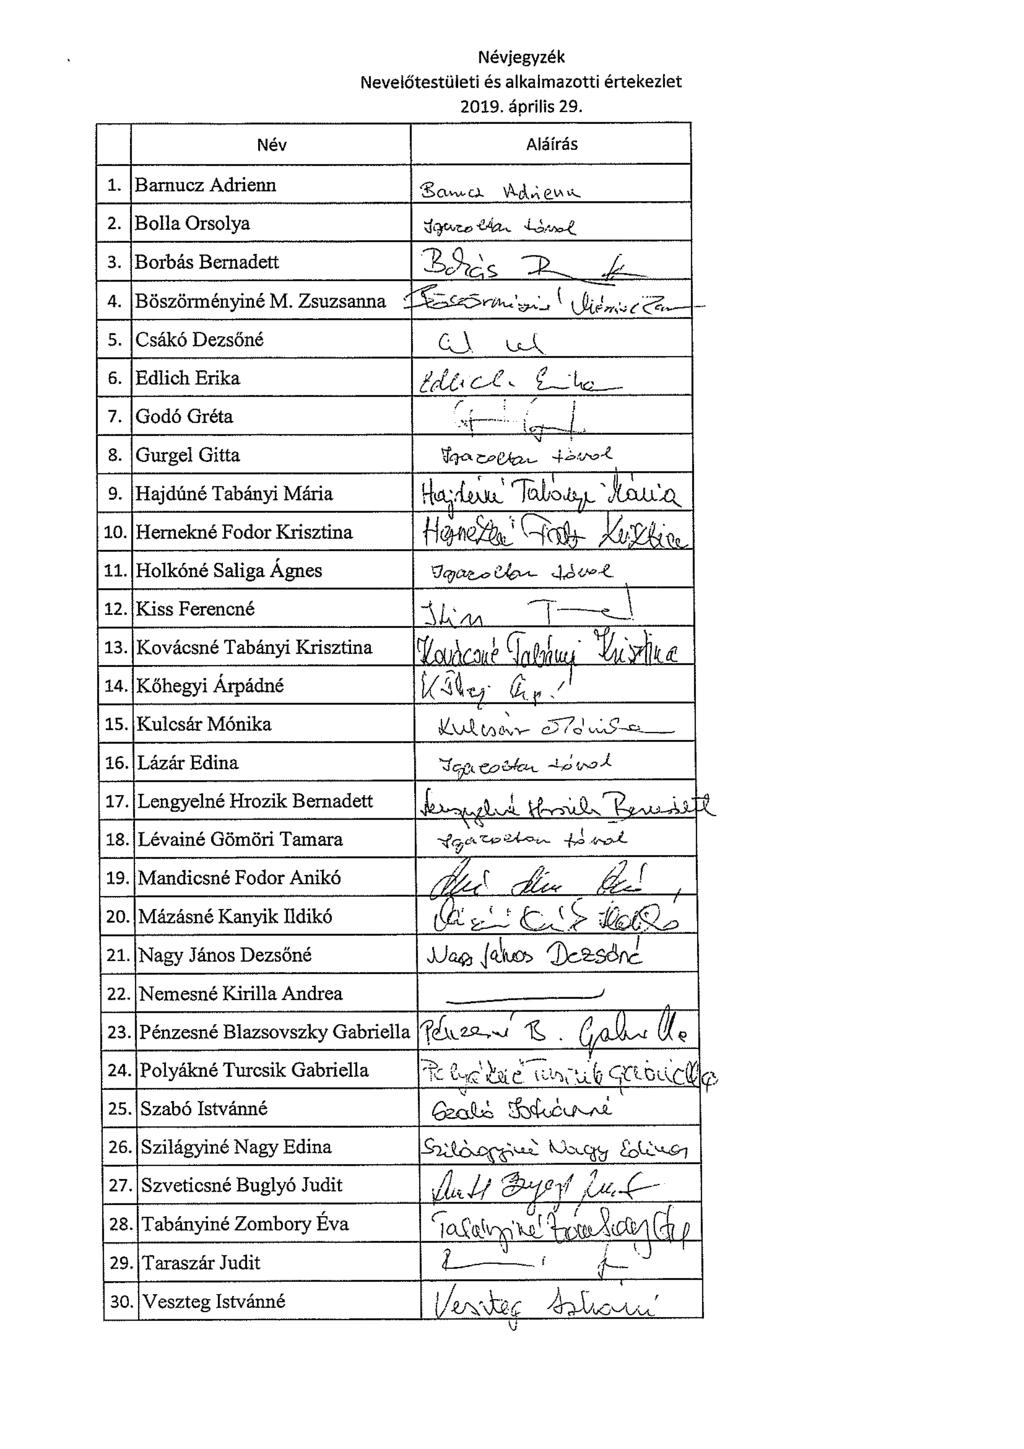 Névjegyzék
Nevelőtestületi és alkalmazotti értekezlet
2019. április 29.
Név Aláírás
1. Barnucz Adrienn Barnucz Adrienn
2. Bolla Orsolya Igazoltan távol
3. Borbás Bernadett Borbás
4. Böszörményiné M. Zsuzsanna Böszörményiné
5. Csákó Dezsőné
6. Edlich Erika Edlich Erika
7. Godó Gréta
8. Gurgel Gitta Igazoltan távol
9. Hajdúné Tabányi Mária Hajdúné Tabányi Mária
10. Hernekné Fodor Krisztina Hernekné Fodor Krisztina
11. Holkóné Saliga Ágnes Igazoltan távol
12. Kiss Ferencné
13. Kovácsné Tabányi Krisztina Kovácsné Tabányi Krisztina
14. Kőhegyi Árpádné Kőhegyi
15. Kulcsár Mónika Kulcsár Mónika
16. Lázár Edina Igazoltan távol
17. Lengyelné Hrozik Bernadett Lengyelné Hrozik Bernadett
18. Lévainé Gömöri Tamara Igazoltan távol
19. Mandicsné Fodor Anikó
20. Mázásné Kanyik Ildikó Ildikó
21. Nagy János Dezsőné Nagy János Dezsőné
22. Nemesné Kirilla Andrea
23. Pénzesné Blazsovszky Gabriella Pénzesné B. Gabriella
24. Polyákné Turcsik Gabriella Polyákné Turcsik Gabriella
25. Szabó Istvánné Szabó Istvánné
26. Szilágyiné Nagy Edina Szilágyiné Nagy Edina
27. Szveticsné Buglyó Judit
28. Tabányiné Zombory Éva Tabányiné Zombory Éva
29. Taraszár Judit
30. Veszteg Istvánné Veszteg Istvánné